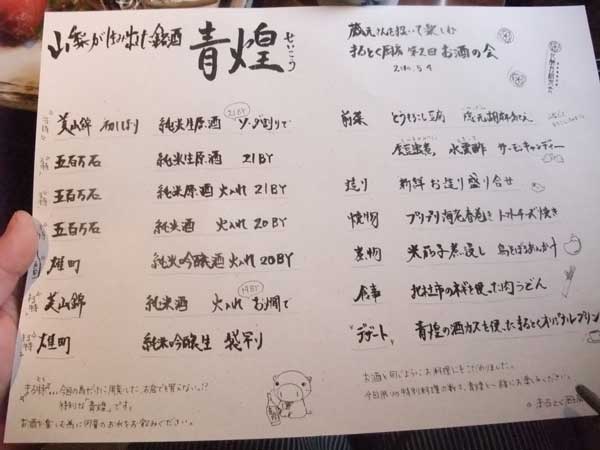 山梨が生み出した銘酒 青煌 せいこう
蔵元さんを招いて楽しむ
まるとく厨房 第2回 お酒の会
美山錦 初しぼり 純米生原酒 21BY ソーダ割りで
五百万石 純米生原酒 21BY
五百万石 純米原酒 火入れ 21BY
五百万石 純米酒 火入れ 20BY
雄町 純米吟醸酒 火入れ 20BY
美山錦 純米酒 火入れ 19BY お燗で
雄町 純米吟醸生 袋吊り
前菜 とうもろこし豆腐
水雲酢 サーモンキャンディー
造り 新鮮お造り盛り合せ
焼物 プリプリ海老春巻き トマトチーズ焼き
煮物 米茄子煮浸し 鳥そぼろあんかけ
食事 北杜市の
を使った肉うどん
デザート 青煌の酒カスを使ったまるとくオリジナルプリン
まる特…今回の為だけに用意した、お店でも買えない!?
特別な「青煌」です。
お酒を楽しむ為に同量のお水をお飲みください。
お酒と同じようにお料理にもこだわりました。
今日限りの特別料理の数々、青煌と一緒にお楽しみください。